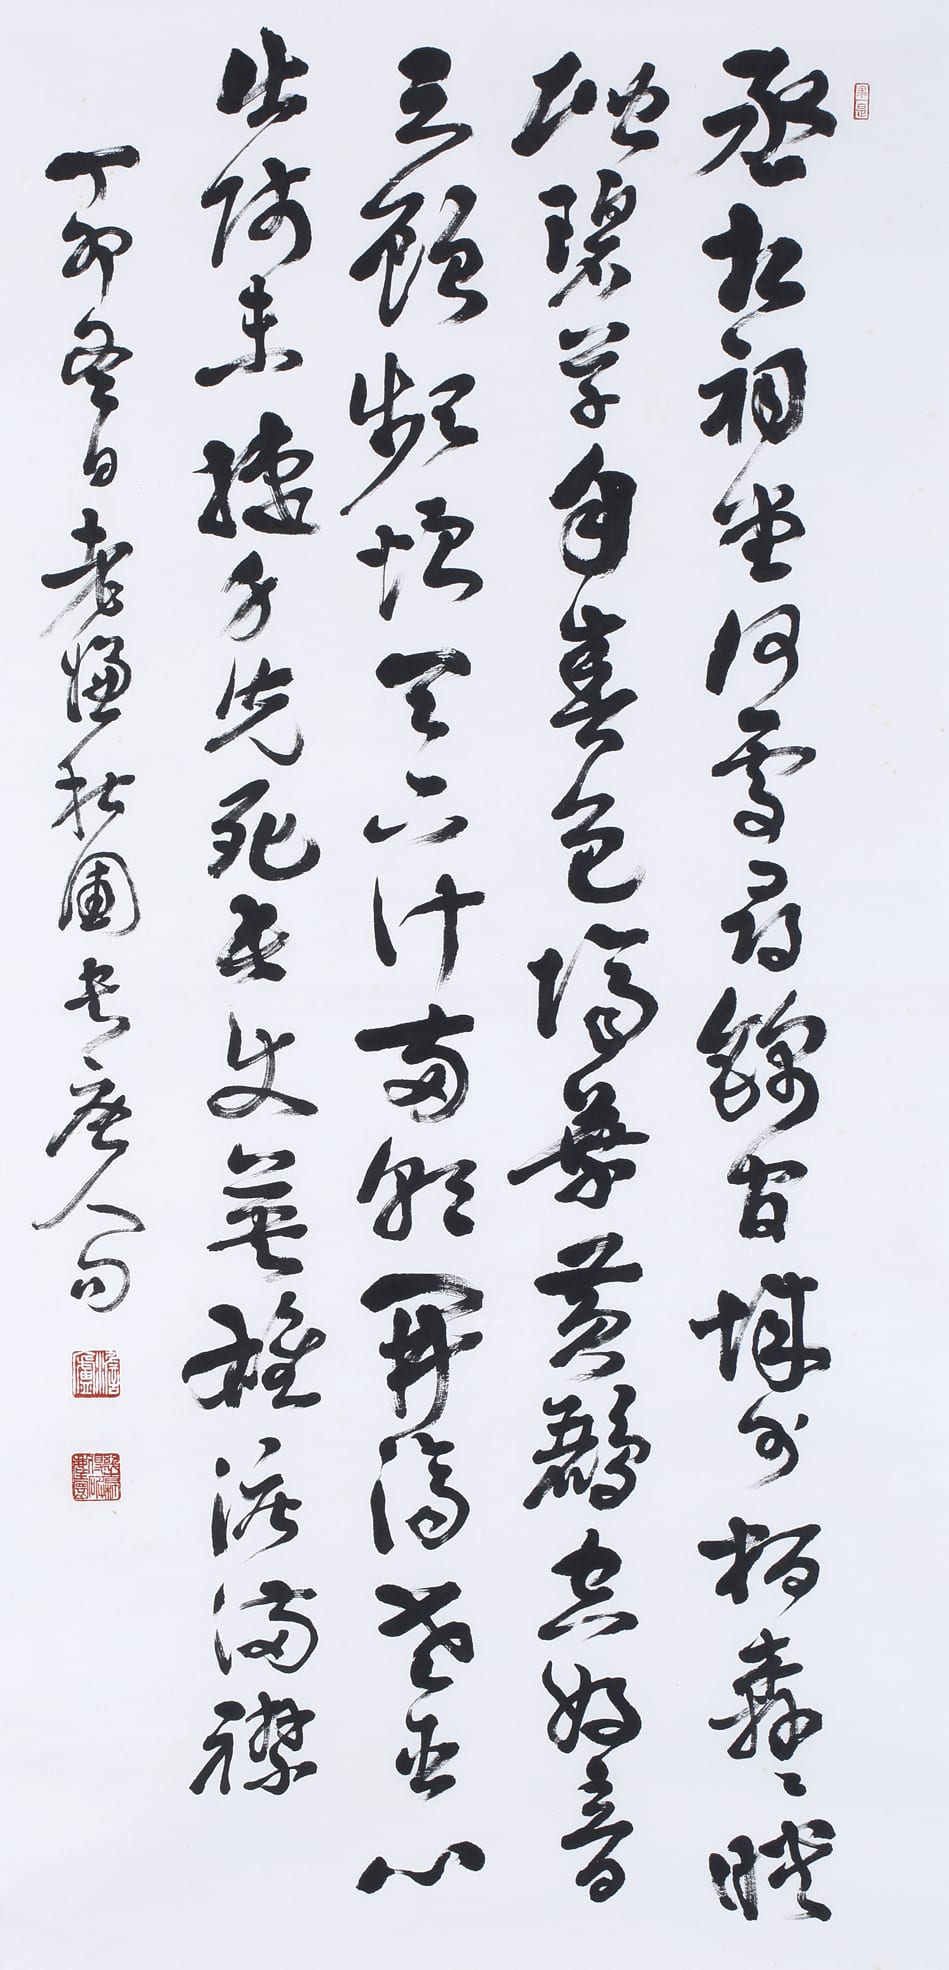 丞相祠堂何處尋錦官城外柏森〻映
堦碧草自春色隔葉黃鸝空好音
三顧頻煩天下計兩朝開濟老臣心
出師未捷身先死長使英雄淚滿襟
丁卯冬日老書唐人句